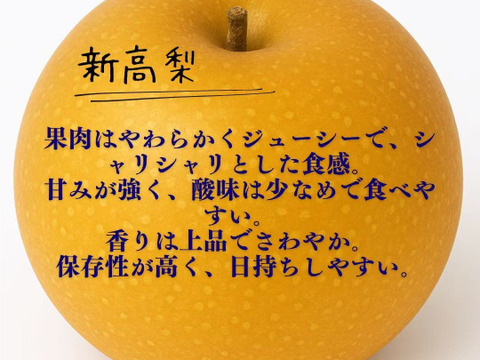 新高梨
果肉はやわらかくジューシーで、シ
ャリシャリとした食感。
甘みが強く、酸味は少なめで食べや
すい。
香りは上品でさわやか。
保存性が高く、日持ちしやすい。